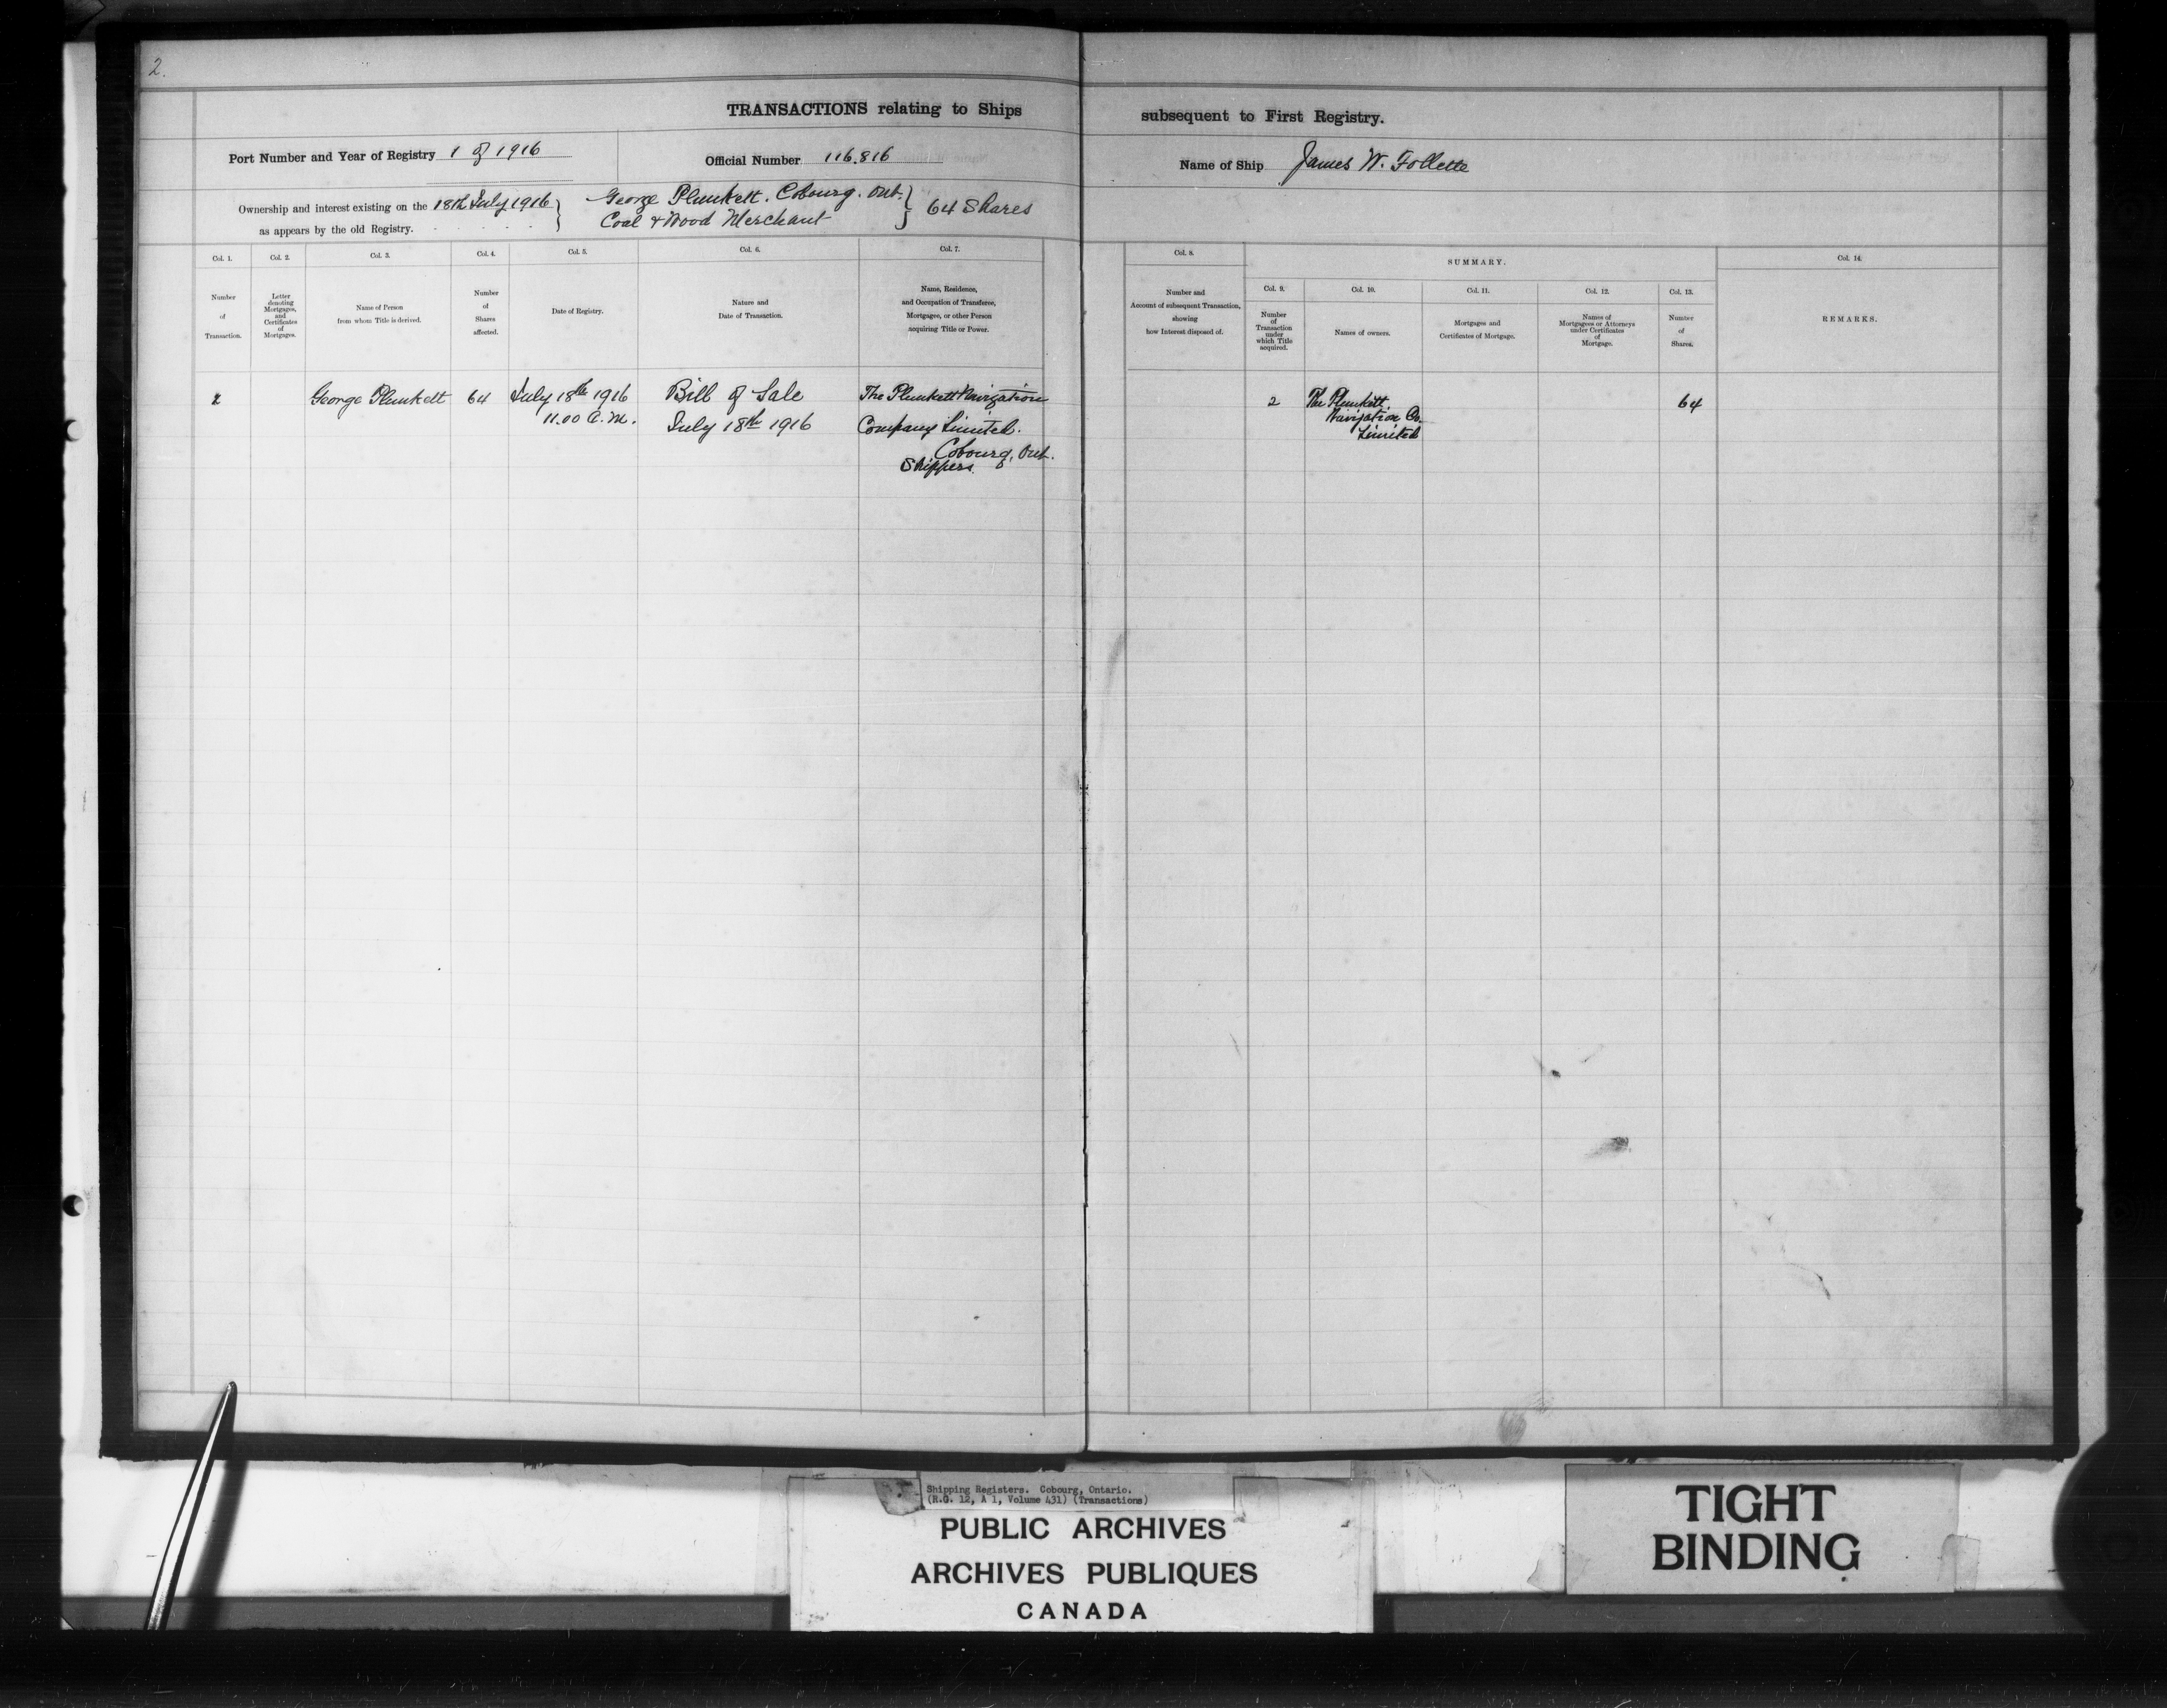 2.
TRANSACTIONS relating to Ships subsequent to First Registry.
Port Number and Year of Registry 1 of 1916
Official Number 116,816
Name of Ship James W. Follette
Ownership and interest existing on the 18th July 1916 } George Plunkett. Cobourg. Ont. } 64 Shares
as appears by the old Registry. Coal & Wood Merchant
Col. 1.
Number
of
Transaction.
Col. 2.
Letter
denoting
Mortgages,
and
Certificates
of
Mortgages.
Col. 3.
Name of Person
from whom Title is derived.
Col. 4.
Number
of
Shares
affected.
Col. 5.
Date of Registry.
Col. 6.
Nature and
Date of Transaction.
Col. 7.
Name, Residence,
and Occupation of Transferee,
Mortgagee, or other Person
acquiring Title or Power.
Col. 8.
Number and
Account of subsequent Transaction,
showing
how Interest disposed of.
SUMMARY.
Col. 9.
Number
of
Transaction
under
which Title
acquired.
Col. 10.
Names of owners.
Col. 11.
Mortgages and
Certificates of Mortgage.
Col. 12.
Names of
Mortgagees or Attorneys
under Certificates
of
Mortgage.
Col. 13.
Number
of
Shares.
Col. 14.
REMARKS.
2
George Plunkett
64
July 18th 1916
11.00 a.m.
Bill of Sale
July 18th 1916
The Plunkett Navigation
Company Limited.
Cobourg, Ont.
Shippers.
2
The Plunkett
Navigation Co.
Limited
64
Shipping Registers. Cobourg, Ontario.
(R.G. 12, A 1, Volume 431) (Transactions)
PUBLIC ARCHIVES
ARCHIVES PUBLIQUES
CANADA
TIGHT
BINDING